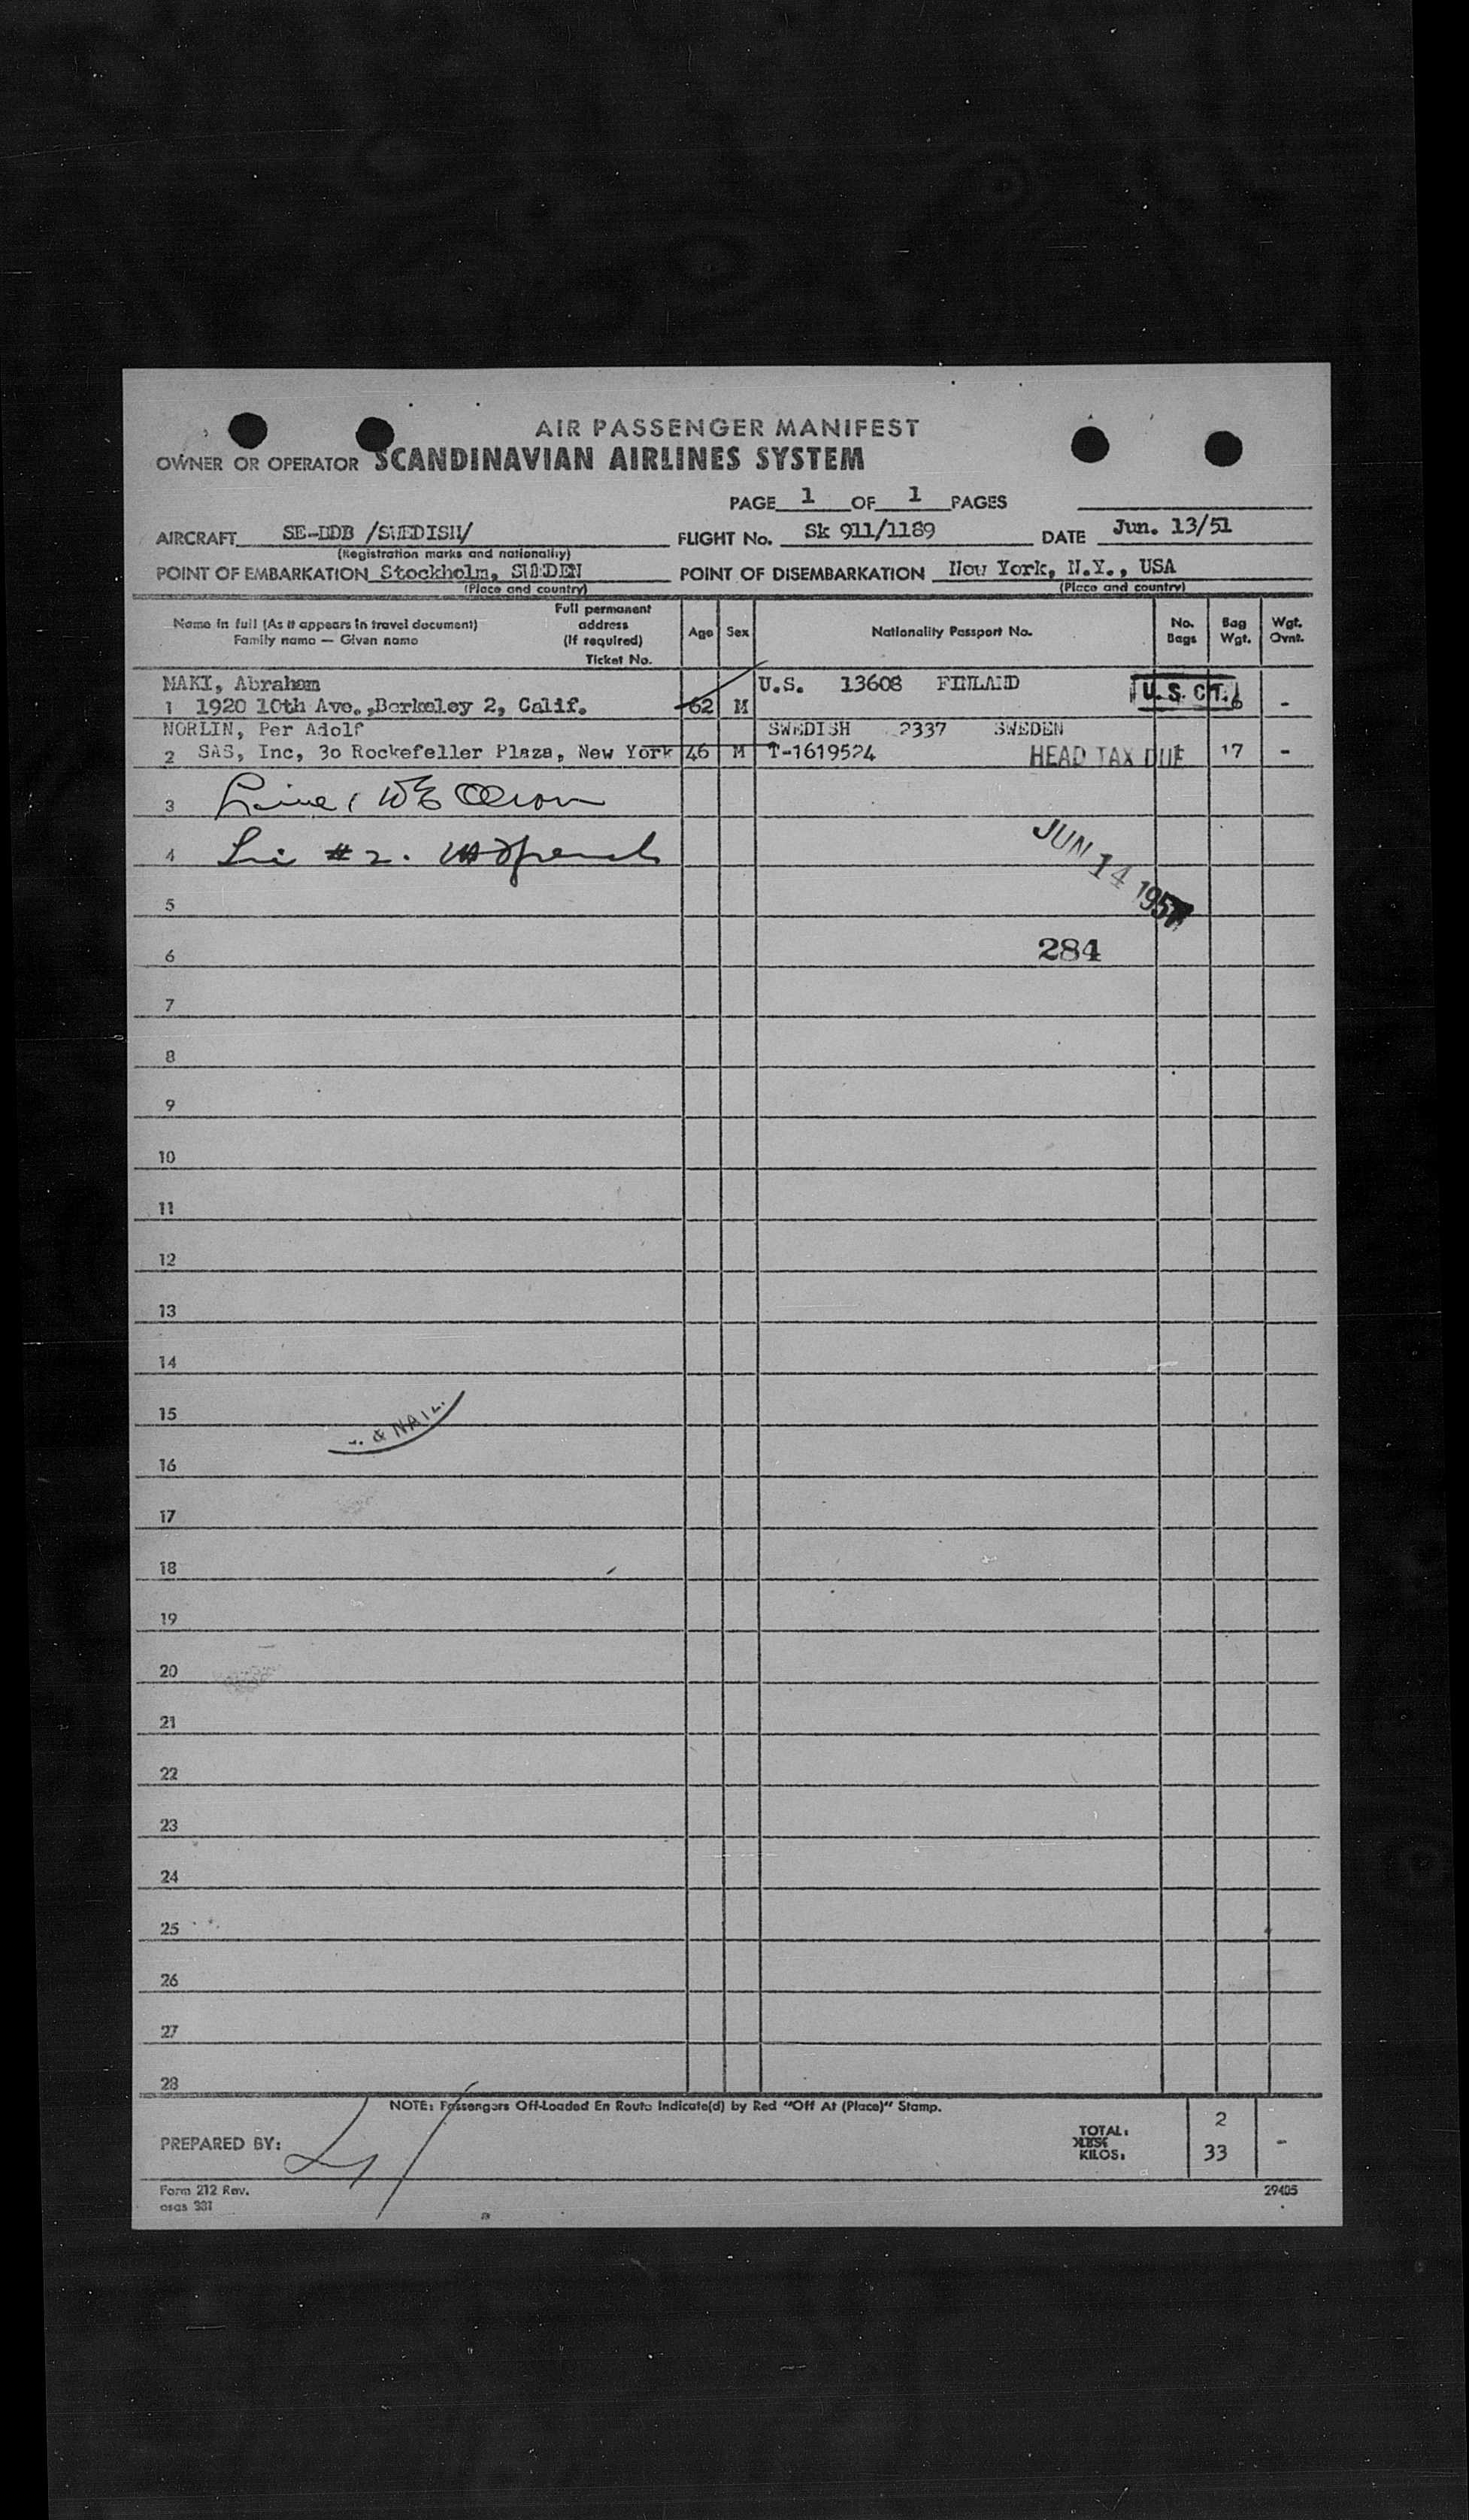 AIR PASSENGER MANIFEST
OWNER OR OPERATOR SCANDINAVIAN AIRLINES SYSTEM
PAGE 1 OF 1 PAGES
AIRCRAFT SE-BDB /SWEDISH/ FLIGHT No. Sk 911/1189 DATE Jun. 13/51
(Registration marks and nationality)
POINT OF EMBARKATION Stockholm, SWEDEN POINT OF DISEMBARKATION New York, N.Y., USA
(Place and country) (Place and country)
Name in full (As it appears in travel document) Family name — Given name Full permanent address (If required) Ticket No. Age Sex Nationality Passport No. No. Bags Bag Wgt. Wgt. Ovnt.
MAKI, Abraham U.S. 13608 FINLAND U.S. CT.
1 1920 10th Ave.,Berkeley 2, Calif. 62 M 6 -
NORLIN, Per Adolf SWEDISH 2337 SWEDEN
2 SAS, Inc, 30 Rockefeller Plaza, New York 46 M T-1619524 HEAD TAX DUE 17 -
3
4 #2.
JUN 14 1951
5
6 284
7
8
9
10
11
12
13
14
15
& NAT
16
17
18
19
20
21
22
23
24
25
26
27
28
NOTE: Passengers Off-Loaded En Route Indicate(d) by Red "Off At (Place)" Stamp.
PREPARED BY: TOTAL: 2
KILOS: 33 -
Form 212 Rev. 29405
osas 331